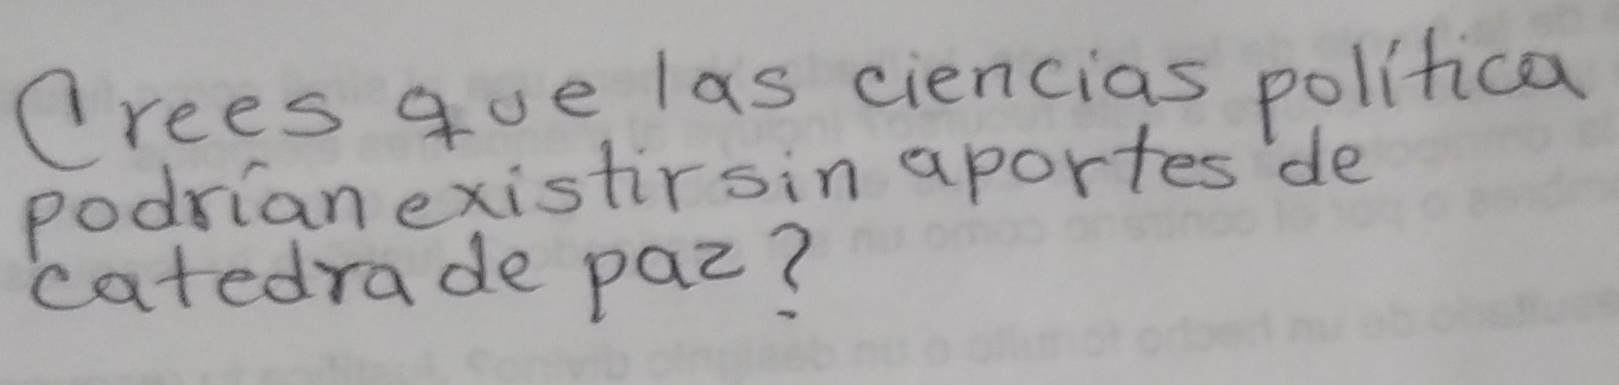 Crees que las ciencias política
podrían existir sin aportes de
catedra de paz?